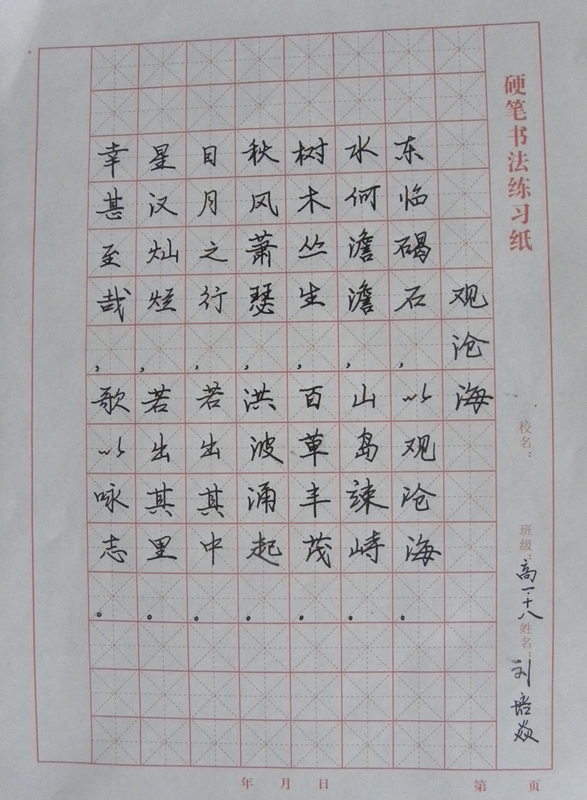 硬笔书法练习纸
校名：
班级：高一十八
姓名：刘培焱
观沧海
东临碣石，以观沧海。
水何澹澹，山岛竦峙。
树木丛生，百草丰茂。
秋风萧瑟，洪波涌起。
日月之行，若出其中。
星汉灿烂，若出其里。
幸甚至哉，歌以咏志。
年 月 日
第 页